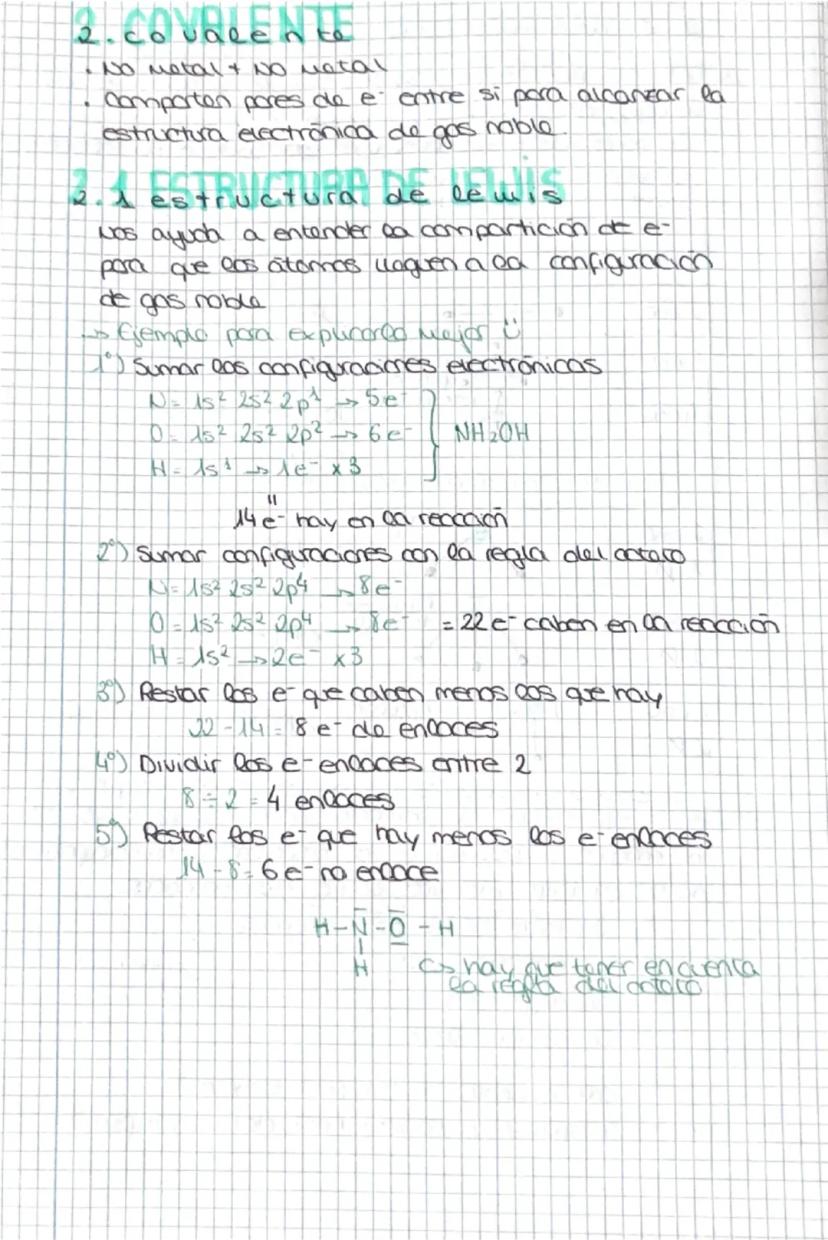 2. COVALENTE
2. covalente
· No metal + No metal
· Comparten pares de e⁻ entre si para alcanzar la
estructura electrónica de gas noble.
2.1 ESTRUCTURA DE LEWIS
2.1 estructura de lewis
Nos ayuda a entender la compartición de e⁻
para que los átomos lleguen a la configuración
de gas noble
→ Ejemplo para explicarlo mejor ü
1º) Sumar las configuraciones electrónicas
N = 1s² 2s² 2p¹ → 5e⁻
O = 1s² 2s² 2p² → 6e⁻ } NH₂OH
H = 1s¹ → 1e⁻ x3
"
14e⁻ hay en la reacción
2º) Sumar configuraciones con la regla del octeto
N = 1s² 2s² 2p⁴ → 8e⁻
O = 1s² 2s² 2p⁴ → 8e⁻ = 22e⁻ caben en la reacción
H = 1s² → 2e⁻ x3
3º) Restar los e⁻ que caben menos los que hay
22 - 14 = 8 e⁻ de enlaces
4º) Dividir los e⁻ enlaces entre 2
8 ÷ 2 = 4 enlaces
5º) Restar los e⁻ que hay menos los e⁻ enlaces
14 - 8 = 6 e⁻ no enlace
H - N̅ - O̲̅ - H
|
H ↳ hay que tener en cuenta
la regla del octeto